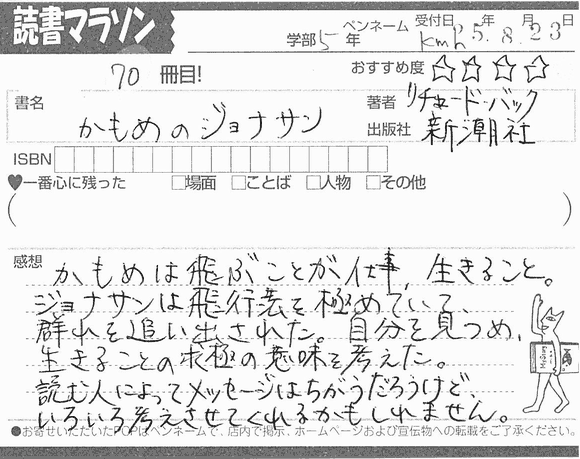 読書マラソン
学部5年 ペンネーム kmh 受付日 25年8月23日
70 冊目! おすすめ度 ☆☆☆☆
書名 かもめのジョナサン
著者 リチャード・バック
出版社 新潮社
ISBN
♥一番心に残った □場面 □ことば □人物 □その他
( )
感想
かもめは飛ぶことが仕事,生きること。
ジョナサンは飛行法を極めていて、
群れを追い出された。自分を見つめ,
生きることの究極の意味を考えた。
読む人によってメッセージはちがうだろうけど、
いろいろ考えさせてくれるかもしれません。
●お寄せいただいたPOPはペンネームで、店内で掲示、ホームページおよび宣伝物への転載をご了承ください。